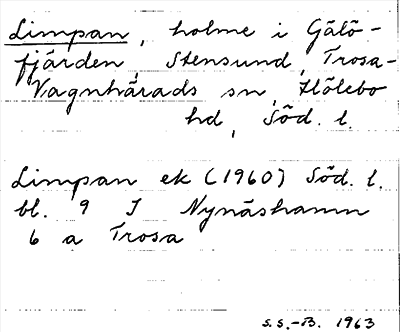 Limpan, holme i Gälö-
fjärden, Stensund, Trosa-
Vagnhärads sn, Hölebo
hd, Söd. l.
Limpan ek (1960) Söd. l.
bl. 9 I Nynäshamn
6 a Trosa
S.S.-B. 1963